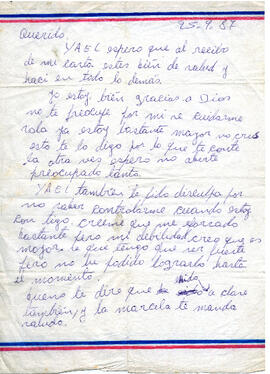 25-9.87
Querido,
YAEL espero que al recibo
de mi carta estes bién de salud y
haci en todo lo demás.
Yo estoy bién gracias a Dios
no te preocupe por mi se cuidarme
sola ya estoy bastante mayor no crees
esto te lo digo por lo que te conte
la otra ves espero no aberte
preocupado tanto.
YAEL tambien te pido disculpa por
no saber controlarme cuando estoy
con tigo, creeme que me
bastante pero mi debilidad creo que es
mayor a que tengo que ser fuerte
pero no he podido lograrlo hasta
el momento.
quero te dire que a clare
tambien, y la marcela te manda
saludo.